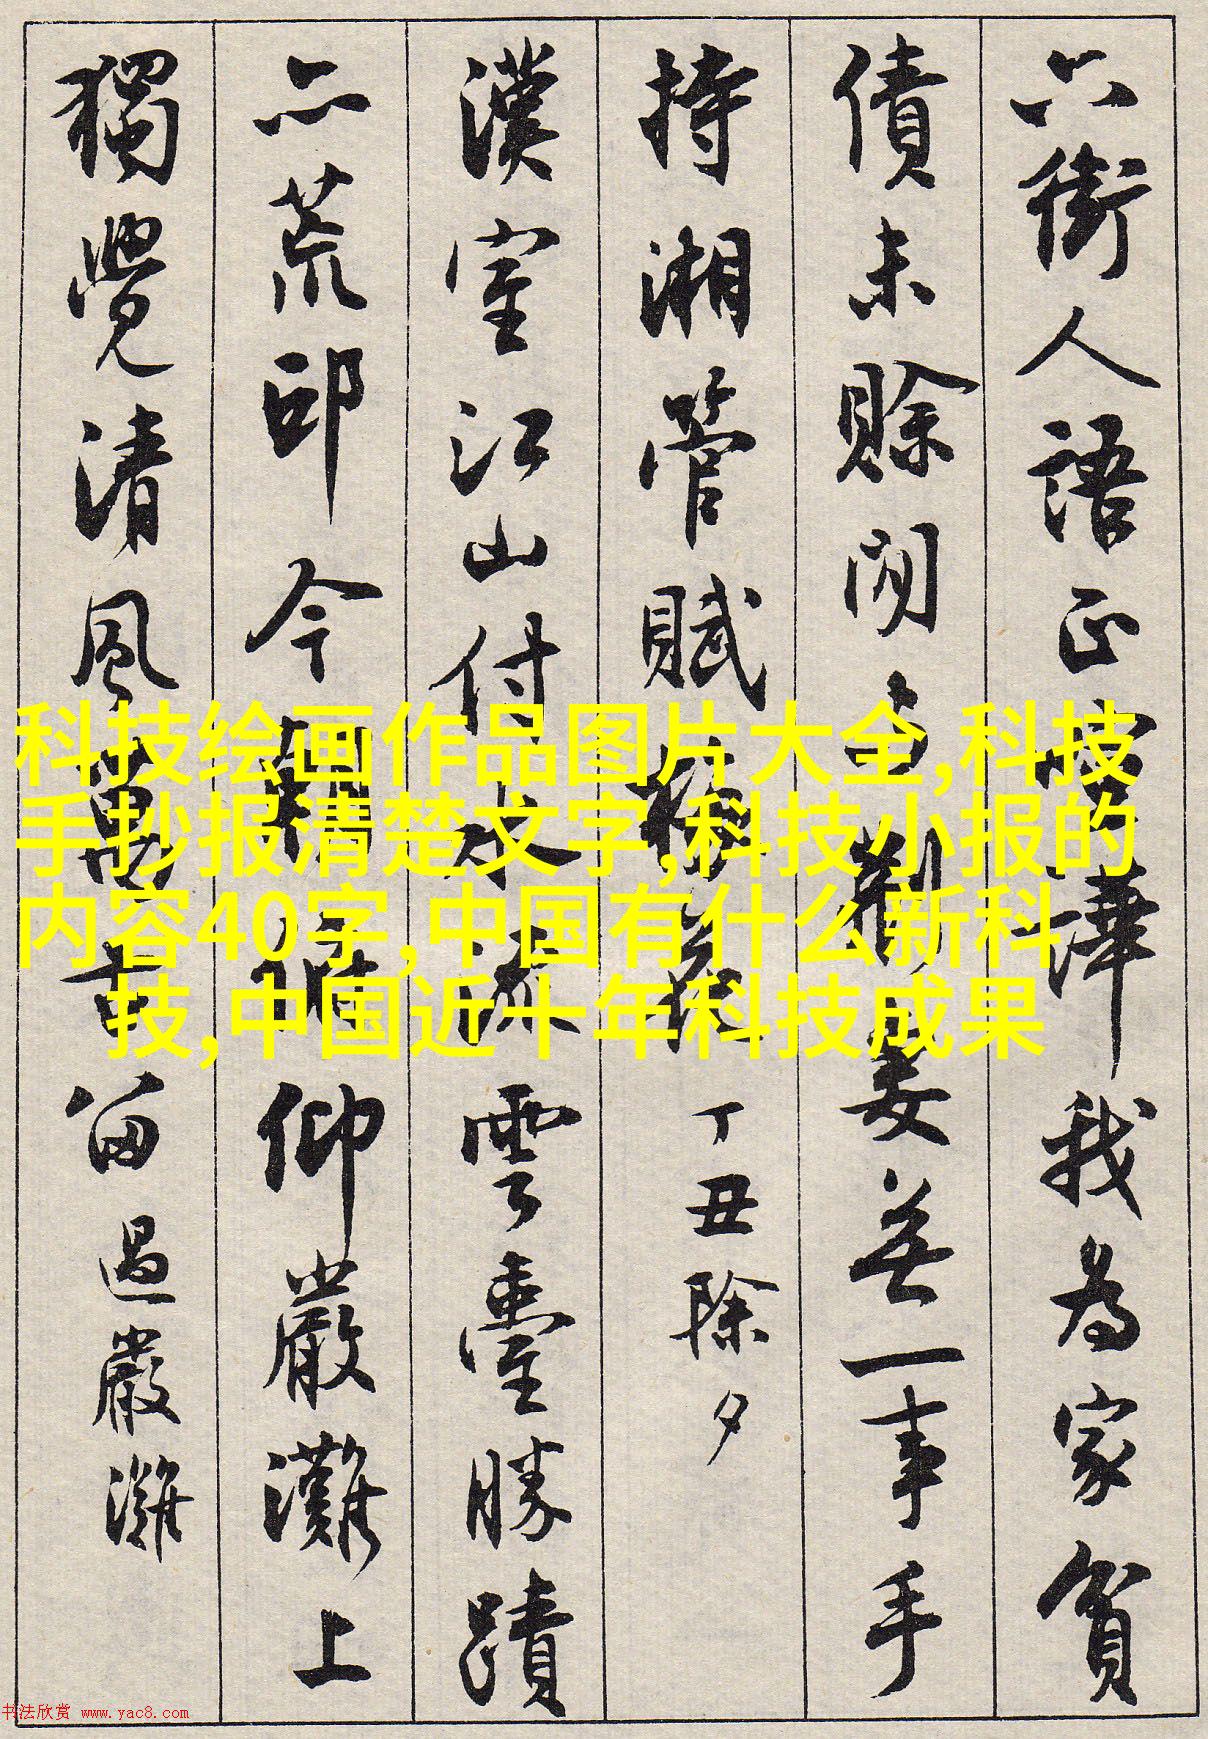 六街人語正喧譁我為家貧
債未賒閉戶荆妻無一事手
持湘管賦梅花 丁丑除夕
漢室江山付水流雲臺勝蹟
亦荒邱今朝仰嚴灘上
獨覺清風萬古留 過嚴灘
科技绘画作品图片大全,科技
手抄报清楚文字,科技小报的
内容40字,中国有什么新科
技,中国近十年科技成果
书法欣赏 www.yac8.com